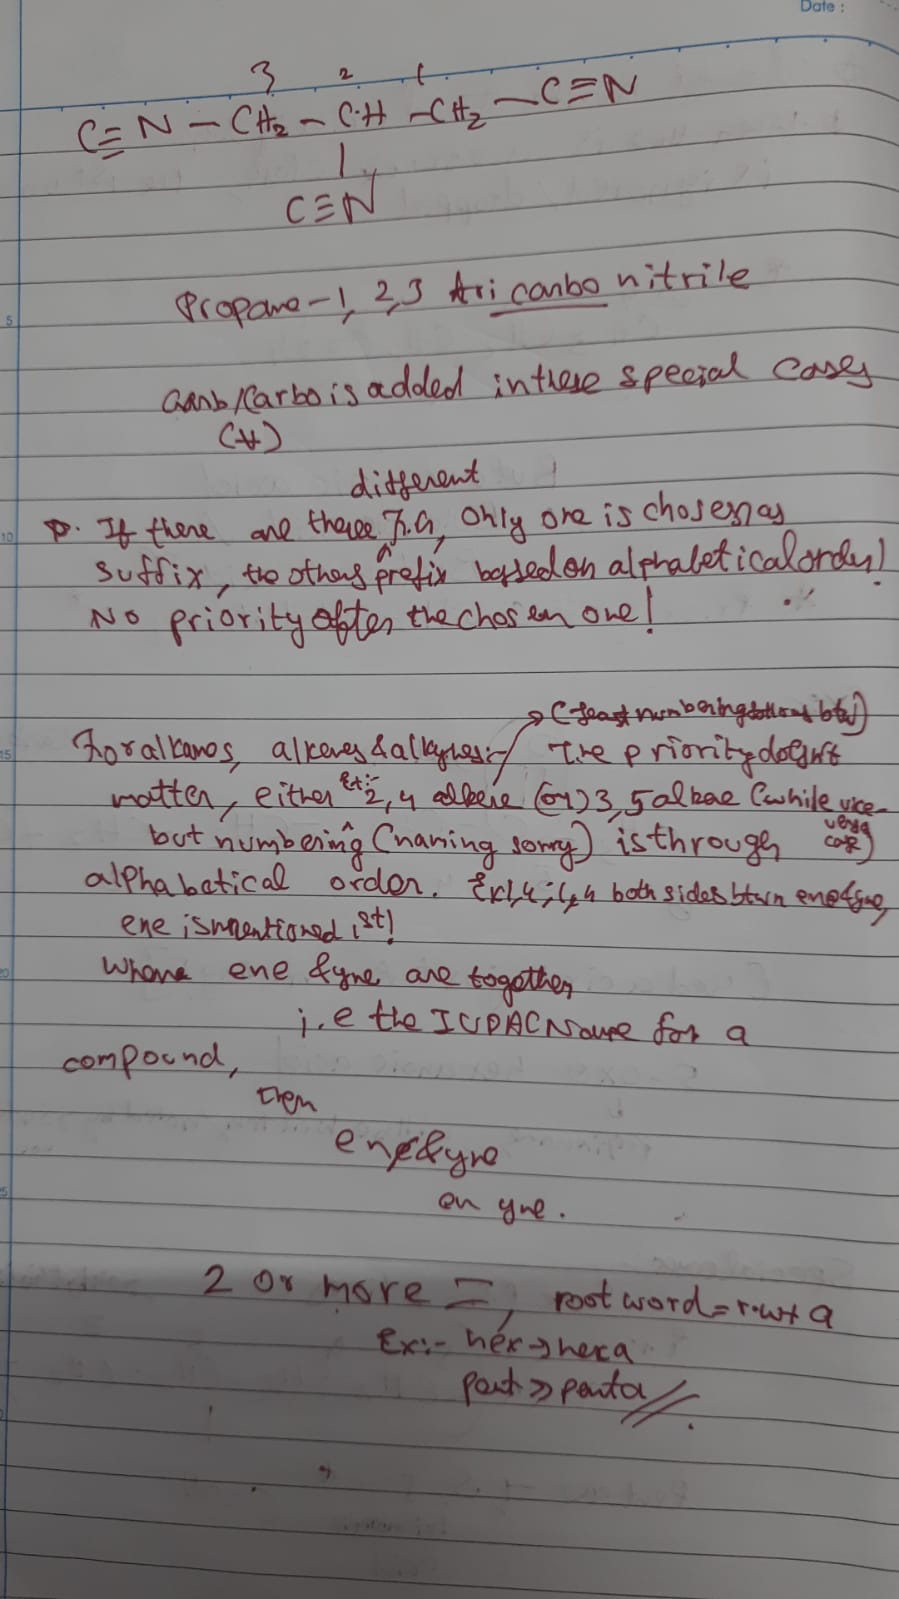 Date :
3 2 1
C≡N – CH2 – CH – CH2 – C≡N
|
C≡N
Propane – 1, 2, 3 tri carbo nitrile
carb/Carbo is added in these special cases
(*)
different
P. If there are three F.G, only one is chosen as
suffix, the others prefix based on alphabetical order!
No priority after the chosen one!
(least numbering btw)
For alkanes, alkenes & alkynes:- The priority doesn't
matter, either Ex:- 2, 4 alkene (or) 3, 5 alkae (while vice-
versa case)
but numbering (naming sorry) is through
alphabetical order. Ex 1,4 ; 1,4 both sides btwn ene & yne,
ene is mentioned 1st!
Where ene & yne are together,
i.e the IUPAC Name for a
compound,
then
ene & yne
en yne.
2 or more =, root word = r.w + a
Ex:- hex → hexa
pent → penta